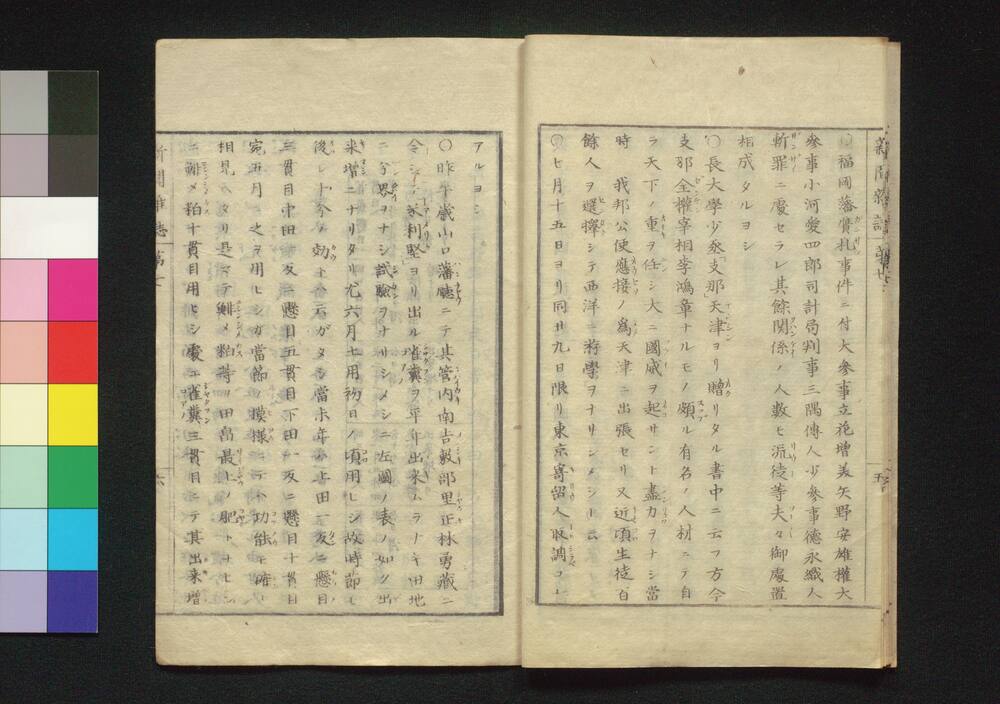 ○福岡藩贋札事件ニ付大參事立花増美矢野安雄權大
參事小河愛四郎司計局判事三隅傳人少參事德永織人
斬罪ニ處セラレ其餘関係ノ人数モ流徒等夫々御處置
相成タルヨシ
○長大學少丞「支那」天津ヨリ贈リタル書中ニ云フ方今
支那全權宰相李鴻章ナルモノ頗ル有名ノ人材ニテ自
ラ天下ノ重ヲ任シ大ニ國威ヲ起サント盡力ヲナシ當
時 我邦公使應接ノ爲天津ニ出張セリ又近頃生徒百
餘人ヲ選擇シテ西洋ニ游學ヲナサシメシト云
○七月十五日ヨリ同廿九日限リ東京寄留人取調コレ
アルヨシ
○昨午歳山口藩廳ニテ其管内南吉敷部里正林勇藏ニ
令シテ「米利堅」ヨリ出ル雀糞ヲ年々出来ムラナキ田地
ニ分界ヲナシ試驗ヲナサシメシニ左圖ノ表ノ如ク出
来増ニナリタリ尤六月七用初日ノ頃用シ故時節モ
後レ十分ノ効トハ云ガタシ當未年ハ上田一反ニ懸目
三貫目中田一反ニ懸目五貫目下田一反ニ懸目十貫目
宛五月ニ之ヲ用ヒシガ當節ノ模様ニテハ功能モ確ト
相見ヘタリ是マテ鯡メ粕等ヲ田畠最上ノ肥トヨヒシ
ニ鯡メ粕十貫目用ヒシ處エ雀糞三貫目ニテ其出来増